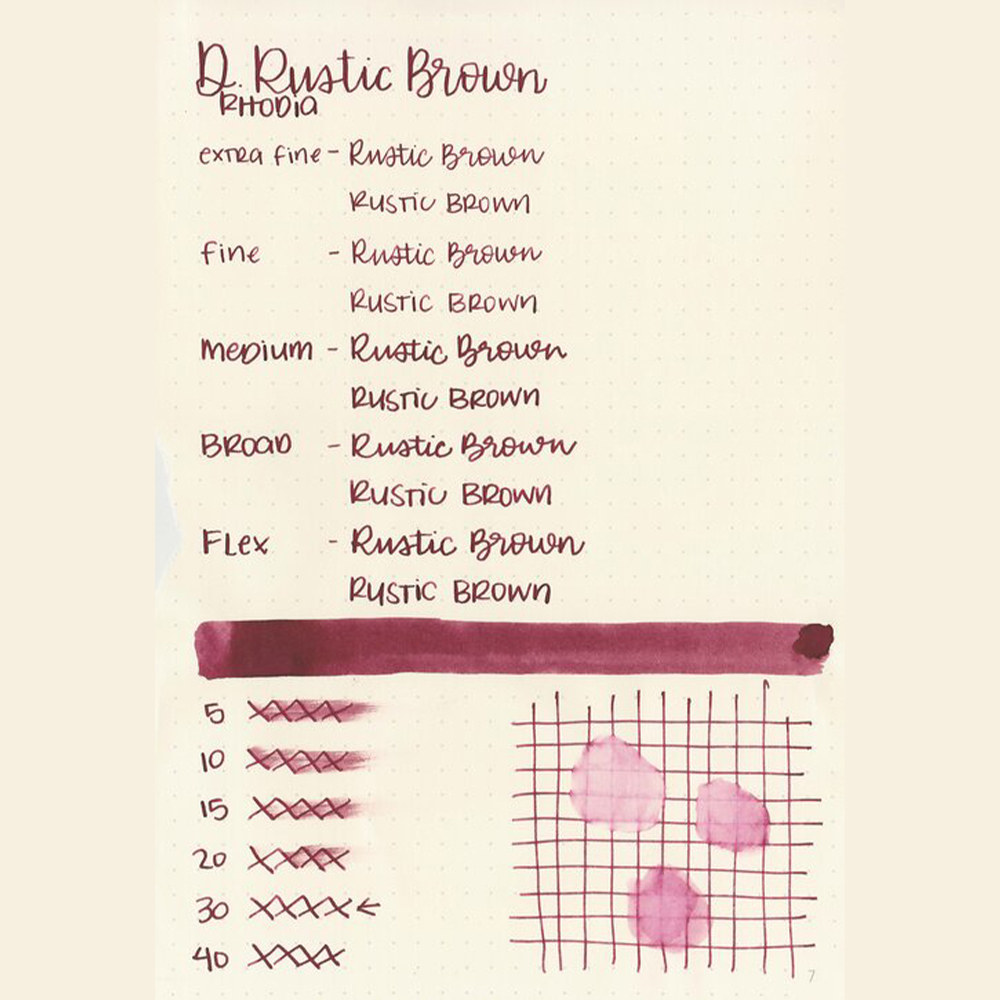 D. Rustic Brown
RHODia
extra fine - Rustic Brown
RUSTIC BROWN
fine - Rustic Brown
RUSTIC BROWN
Medium - Rustic Brown
RUSTIC BROWN
BROAD - Rustic Brown
RUSTIC BROWN
FLex - Rustic Brown
RUSTIC BROWN
5 XXXX
10 XXXX
15 XXXX
20 XXXX
30 XXXX ←
40 XXXX
7